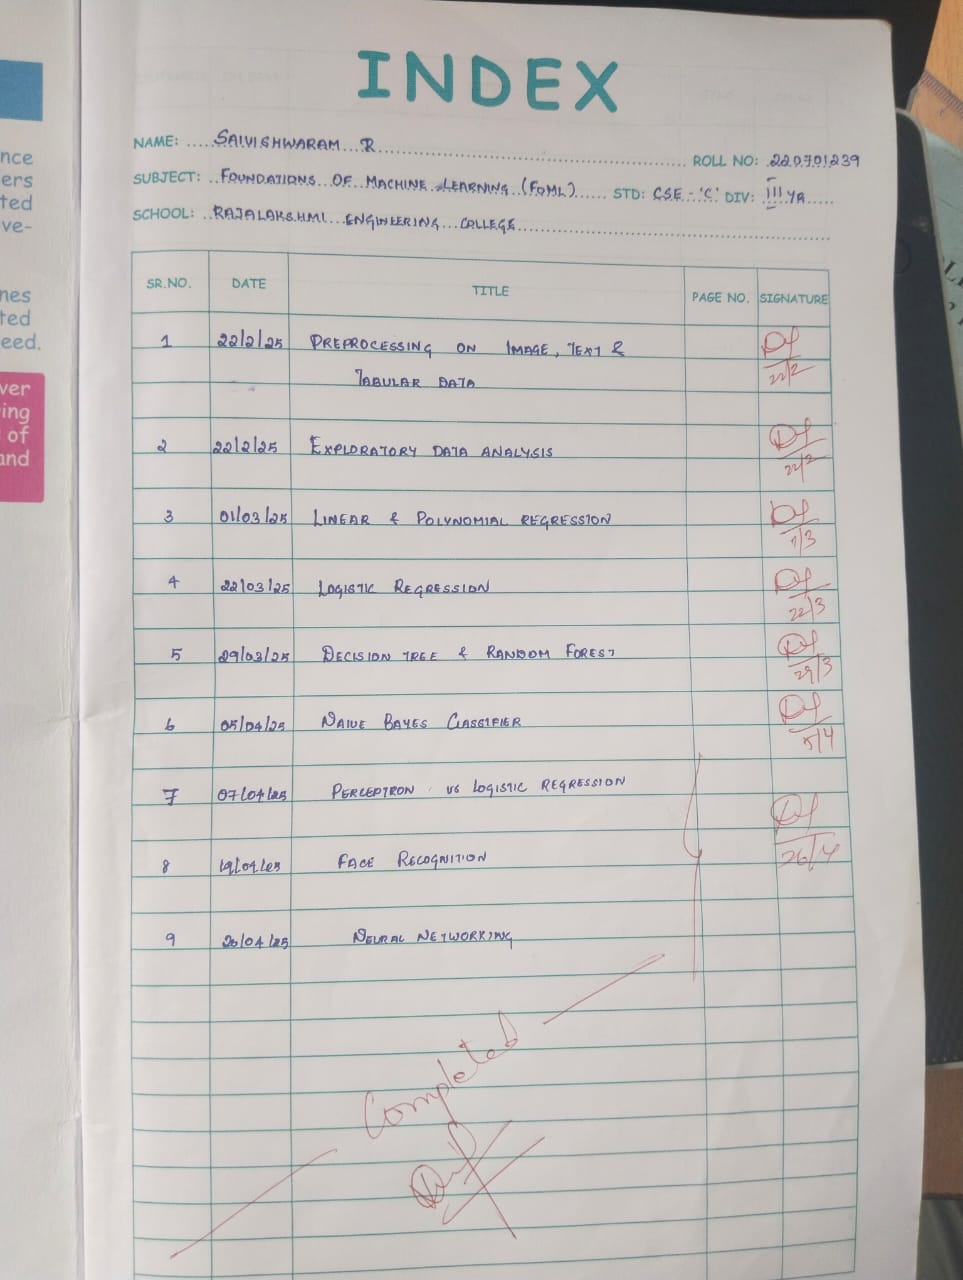 nce
ers
ted
ve-
nes
ted
eed.
ver
ing
of
and
INDEX
NAME: SAIVISHWARAM R ROLL NO: 220701239
SUBJECT: FOUNDATIONS OF MACHINE LEARNING (FOML) STD: CSE-'C' DIV: III YR
SCHOOL: RAJALAKSHMI ENGINEERING COLLEGE
SR.NO. DATE TITLE PAGE NO. SIGNATURE
1 22/2/25 PREPROCESSING ON IMAGE, TEXT &
TABULAR DATA
22/2
2 22/2/25 EXPLORATORY DATA ANALYSIS
22/2
3 01/03/25 LINEAR & POLYNOMIAL REGRESSION
1/3
4 22/03/25 LOGISTIC REGRESSION
22/3
5 29/03/25 DECISION TREE & RANDOM FOREST
29/3
6 05/04/25 NAIVE BAYES CLASSIFIER
5/4
7 07/04/25 PERCEPTRON VS LOGISTIC REGRESSION
8 19/04/25 FACE RECOGNITION
26/4
9 26/04/25 NEURAL NETWORKING
Completed